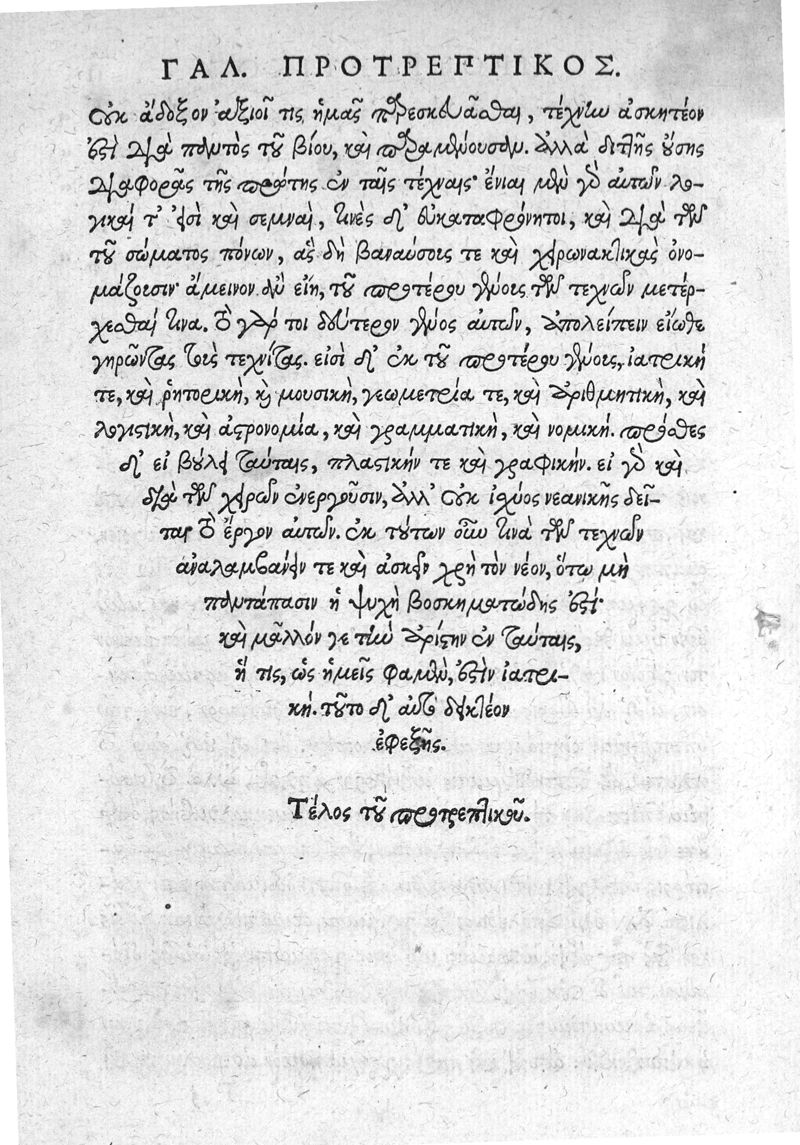 ΓΑΛ. ΠΡΟΤΡΕΠΤΙΚΟΣ.
οὐκ ἄδοξον ἀξιοῖ τις ἡμᾶς παρεσκευᾶσθαι, τέχνην ἀσκητέον
ἐστὶ διὰ παντὸς τοῦ βίου, καὶ παραμένουσαν. ἀλλὰ διττῆς οὔσης
διαφορᾶς τῆς πρώτης ἐν ταῖς τέχναις· ἔνιαι μὲν γὰρ αὐτῶν λο-
γικαί τ' εἰσὶ καὶ σεμναὶ, τινὲς δ' εὐκαταφρόνητοι, καὶ διὰ τῶν
τοῦ σώματος πόνων, ἃς δὴ βαναύσους τε καὶ χειρωνακτικὰς ὀνο-
μάζουσιν· ἄμεινον ἂν εἴη, τοῦ προτέρου γένους τῶν τεχνῶν μετέρ-
χεσθαί τινα. τὸ γάρ τοι δεύτερον γένος αὐτῶν, ἀπολείπειν εἴωθε
γηρῶντας τοὺς τεχνίτας. εἰσὶ δ' ἐκ τοῦ προτέρου γένους, ἰατρική
τε, καὶ ῥητορικὴ, καὶ μουσικὴ, γεωμετρία τε, καὶ ἀριθμητικὴ, καὶ
λογιστικὴ, καὶ ἀστρονομία, καὶ γραμματικὴ, καὶ νομική. πρόσθες
δ' εἰ βούλει ταύταις, πλαστικήν τε καὶ γραφικήν. εἰ γὰρ καὶ
διὰ τῶν χειρῶν ἐνεργοῦσιν, ἀλλ' οὐκ ἰσχύος νεανικῆς δεῖ-
ται τὸ ἔργον αὐτῶν. ἐκ τούτων οὖν τινὰ τῶν τεχνῶν
ἀναλαμβάνειν τε καὶ ἀσκεῖν χρὴ τὸν νέον, ὅτῳ μὴ
παντάπασιν ἡ ψυχὴ βοσκηματώδης ἐστί·
καὶ μᾶλλόν γε τὴν ἀρίστην ἐν ταύταις,
ἥ τις, ὡς ἡμεῖς φαμὲν, ἐστὶν ἰατρι-
κή. τοῦτο δ' αὐτὸ δεικτέον
ἐφεξῆς.
Τέλος τοῦ προτρεπτικοῦ.